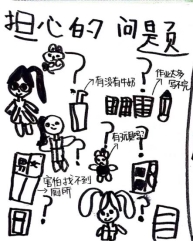 担心的问题
?
?
有没有牛奶
?
作业太多
写不完
?
有玩
男
?
害怕找不到
厕所
?
?